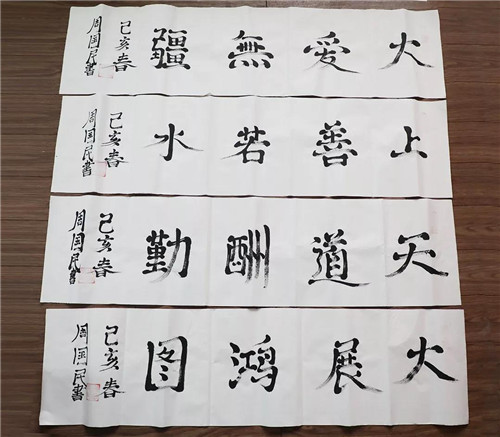 大愛無疆
己亥春
周国民書
上善若水
己亥春
周国民書
天道酬勤
己亥春
周国民書
大展鸿图
己亥春
周国民書